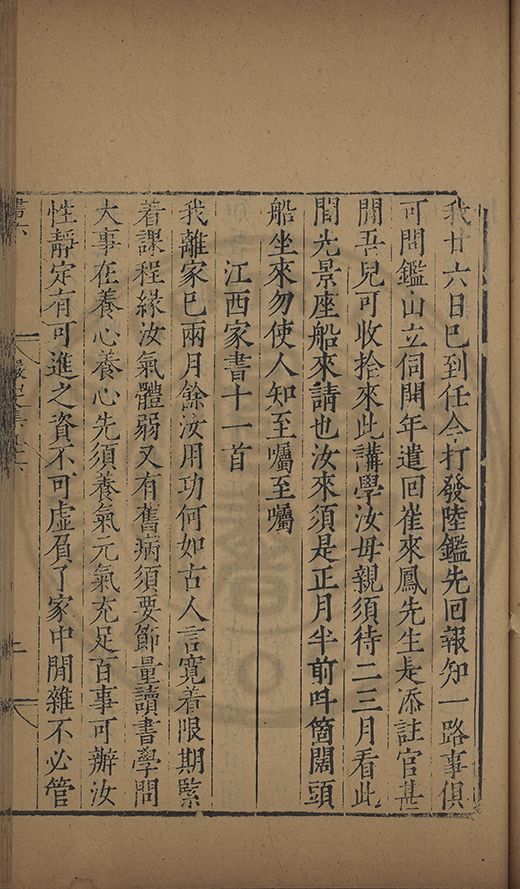 我廿六日已到任今打發陸鑑先回報知一路事俱
可問鑑山立伺開年遣回崔來鳳先生是添註官甚
閒吾兒可收拾來此講學汝母親須待二三月看此
間光景座船來請也汝來須是正月半前呌箇闊頭
船坐來勿使人知至囑至囑
江西家書十一首
我離家已兩月餘汝用功何如古人言寬着限期緊
着課程緣汝氣體弱又有舊病須要節量讀書學問
大事在養心養心先須養氣元氣充足百事可辦汝
性靜定有可進之資不可虛負了家中閒雜不必管